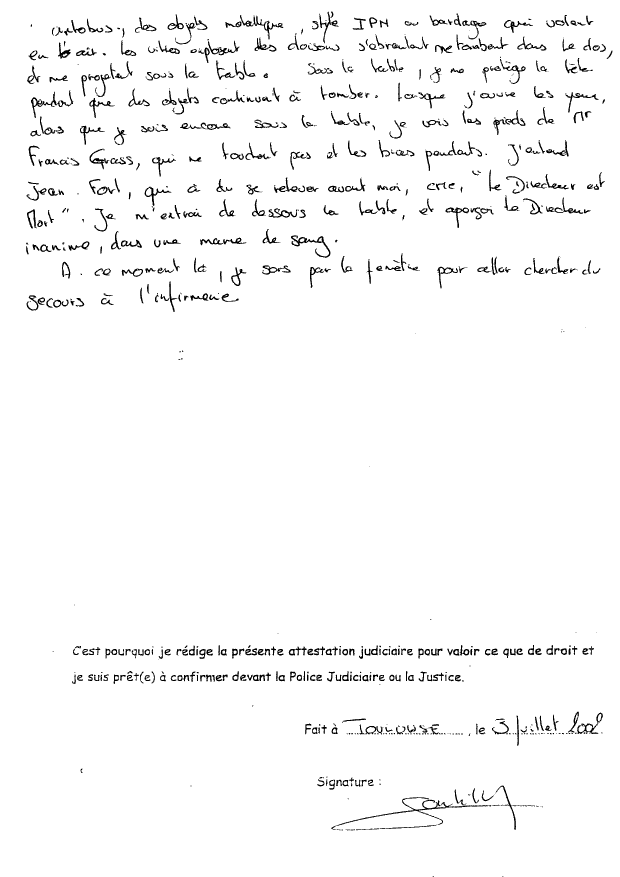 autobus., des objets métallique, style IPN ou bardage qui volent
en l'air. les vitres explosent des cloisons s'ébranlent me tombent dans le dos,
et me projetent sous la table. Sous la table, je me protège la tête
pendant que des objets continuent à tomber. Lorsque j'ouvre les yeux,
alors que je suis encore sous la table, je vois les pieds de Mr
Francis Grass, qui ne touchent pas et les bras pendants. J'entend
Jean. Fort, qui à du se relever avant moi, crie, "Le Directeur est
Mort". Je m'extrai de dessous la table, et aperçoi le Directeur
inanimé, dans une mare de sang.
A. ce moment là, je sors par la fenêtre pour aller chercher du
secours à l'infirmerie
C'est pourquoi je rédige la présente attestation judiciaire pour valoir ce que de droit et
je suis prêt(e) à confirmer devant la Police Judiciaire ou la Justice.
Fait à TOULOUSE, le 3 Juillet 2002
Signature :